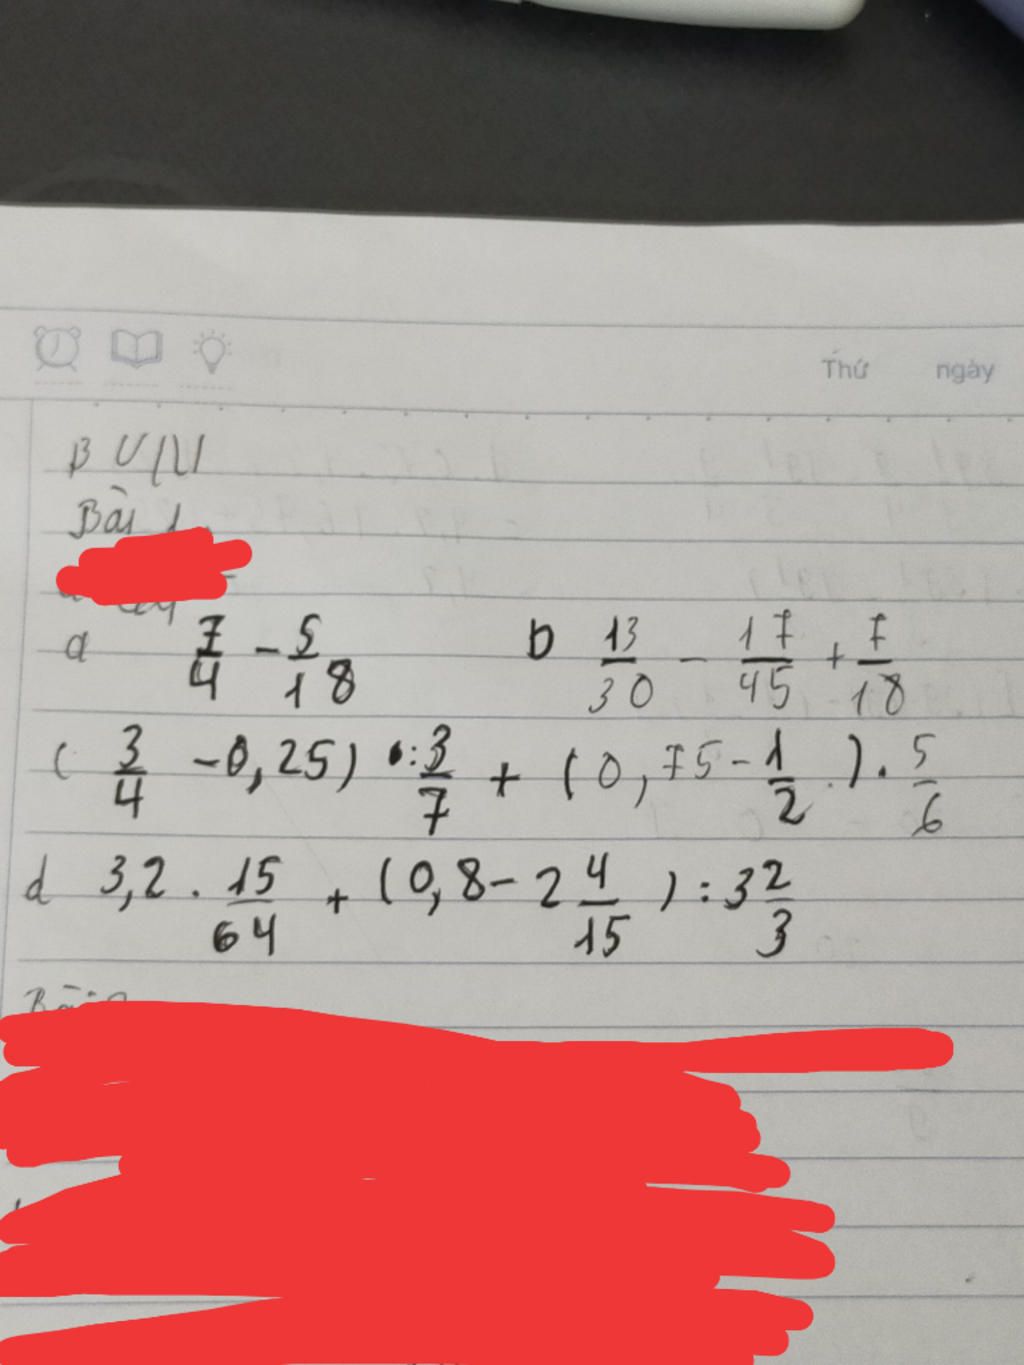 Thứ ngày
BVN
Bài 1
a 7/4 - 5/18 b 13/30 - 17/45 + 7/18
( 3/4 - 0,25) : 3/7 + (0,75 - 1/2) . 5/6
d 3,2 . 15/64 + (0,8 - 2 4/15) : 3 2/3